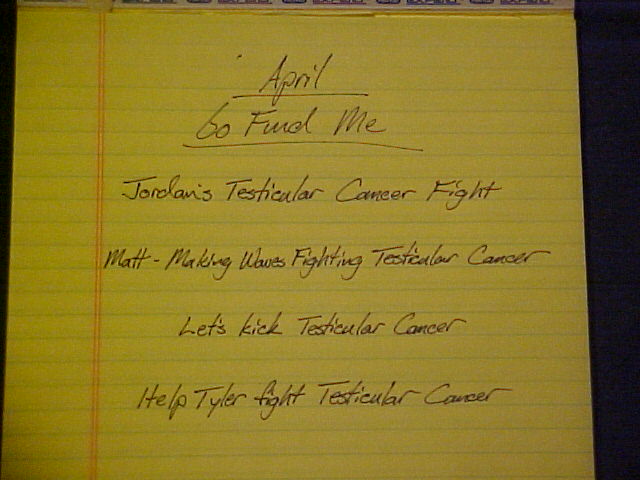 April
Go Fund Me
Jordan's Testicular Cancer Fight
Matt - Making Waves Fighting Testicular Cancer
Let's kick Testicular Cancer
Help Tyler fight Testicular Cancer